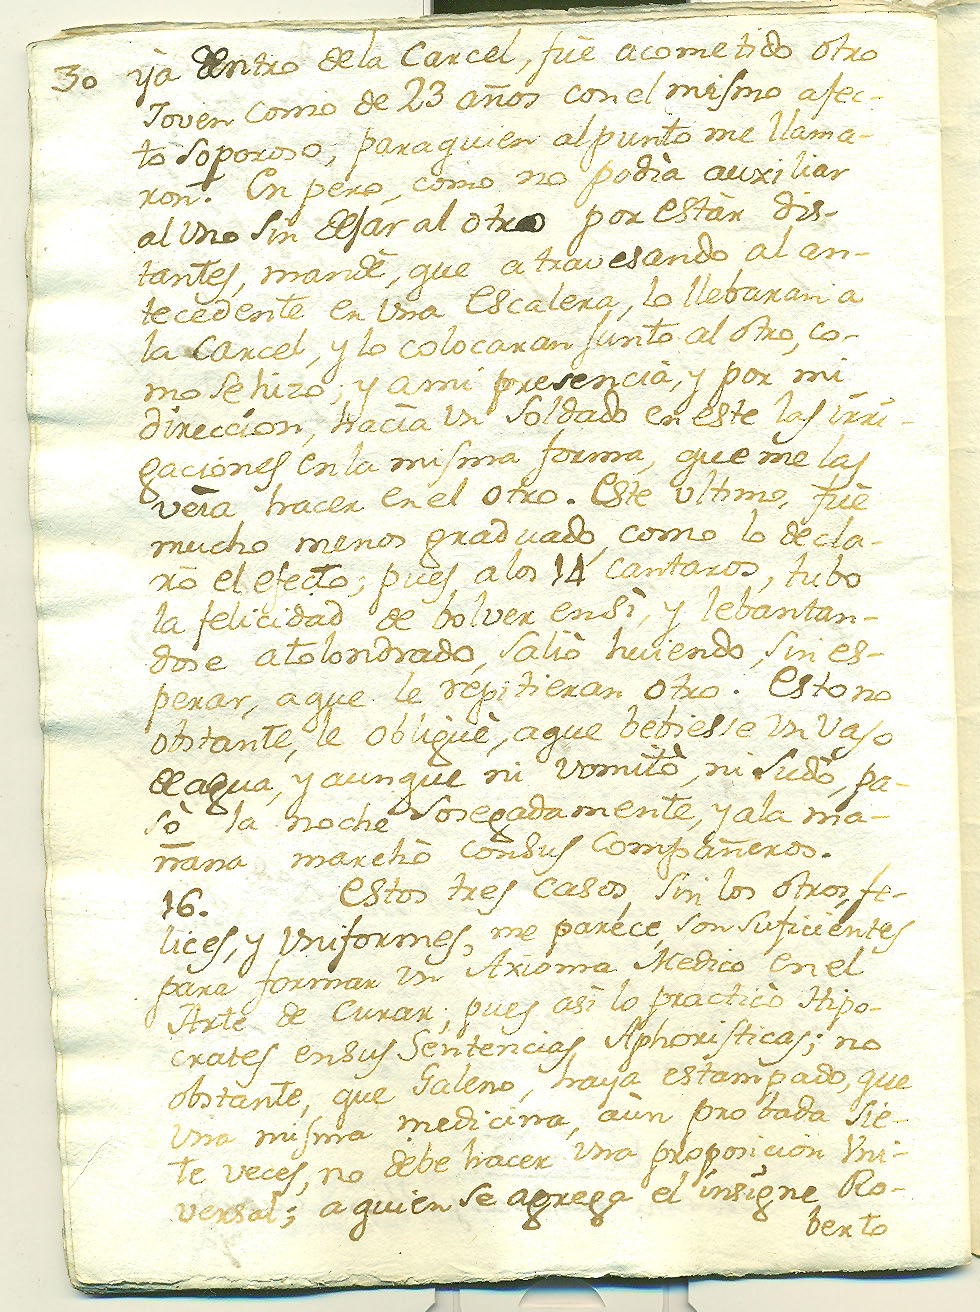 30 yà dentro dela Carcel, fue acometido otro
Joven como de 23 años con el mismo afec-
to soporoso, para quien al punto me llama-
ron. En pero, como no podia auxiliar
al uno sin dejar al otro por estàr dis-
tantes, mandè, que atravesando al an-
tecedente en una Escalera, lo llebaran a
la Carcel, y lo colocaran junto al otro, co-
mo se hizo; y a mi presencia, y por mi
dirección, hacìa un Soldado en este las irri-
gaciones en la misma forma, que me las
veìa hacer en el otro. Este ultimo, fuè
mucho menos graduado, como lo decla-
rò el efecto; pues, a los 14 cantaros, tubo
la felicidad de bolver ensì, y lebantan-
dose atolondrado, saliò huiendo, sin es-
perar, aque le repitieran otro. Esto no
obstante, le obliguè, aque bebiesse un vaso
de agua, y aunque ni vomitò, ni sudò, pa-
sò la noche sosegadamente, y ala ma-
ñana marchò consus Compañeros.
16. Estos tres casos, sin los otros, fe-
lices, y Uniformes, me parece, son suficientes
para formar un Axioma Medico en el
Arte de Curar; pues asì lo practicò Hipo-
crates ensus Sentencias Aphoristicas; no
obstante, que Galeno, haya estampado, que
una misma medicina, aùn probada sie-
te veces, no debe hacer una proposicion Uni-
versal; a quien se agrega el insigne Ro-
berto